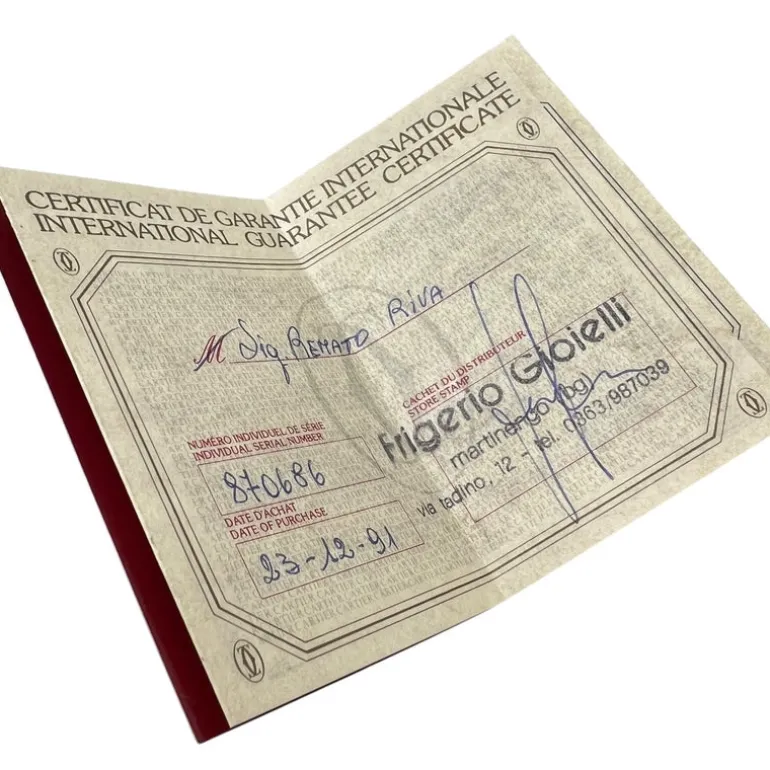 CERTIFICAT DE GARANTIE INTERNATIONALE
INTERNATIONAL GUARANTEE CERTIFICATE
M Sig. RENATO RIVA
NUMÉRO INDIVIDUEL DE SÉRIE
INDIVIDUAL SERIAL NUMBER
870686
DATE D'ACHAT
DATE OF PURCHASE
23-12-91
CACHET DU DISTRIBUTEUR
STORE STAMP
frigerio Gioielli
martinengo (bg)
via tadino, 12 - tel. 0363/987039